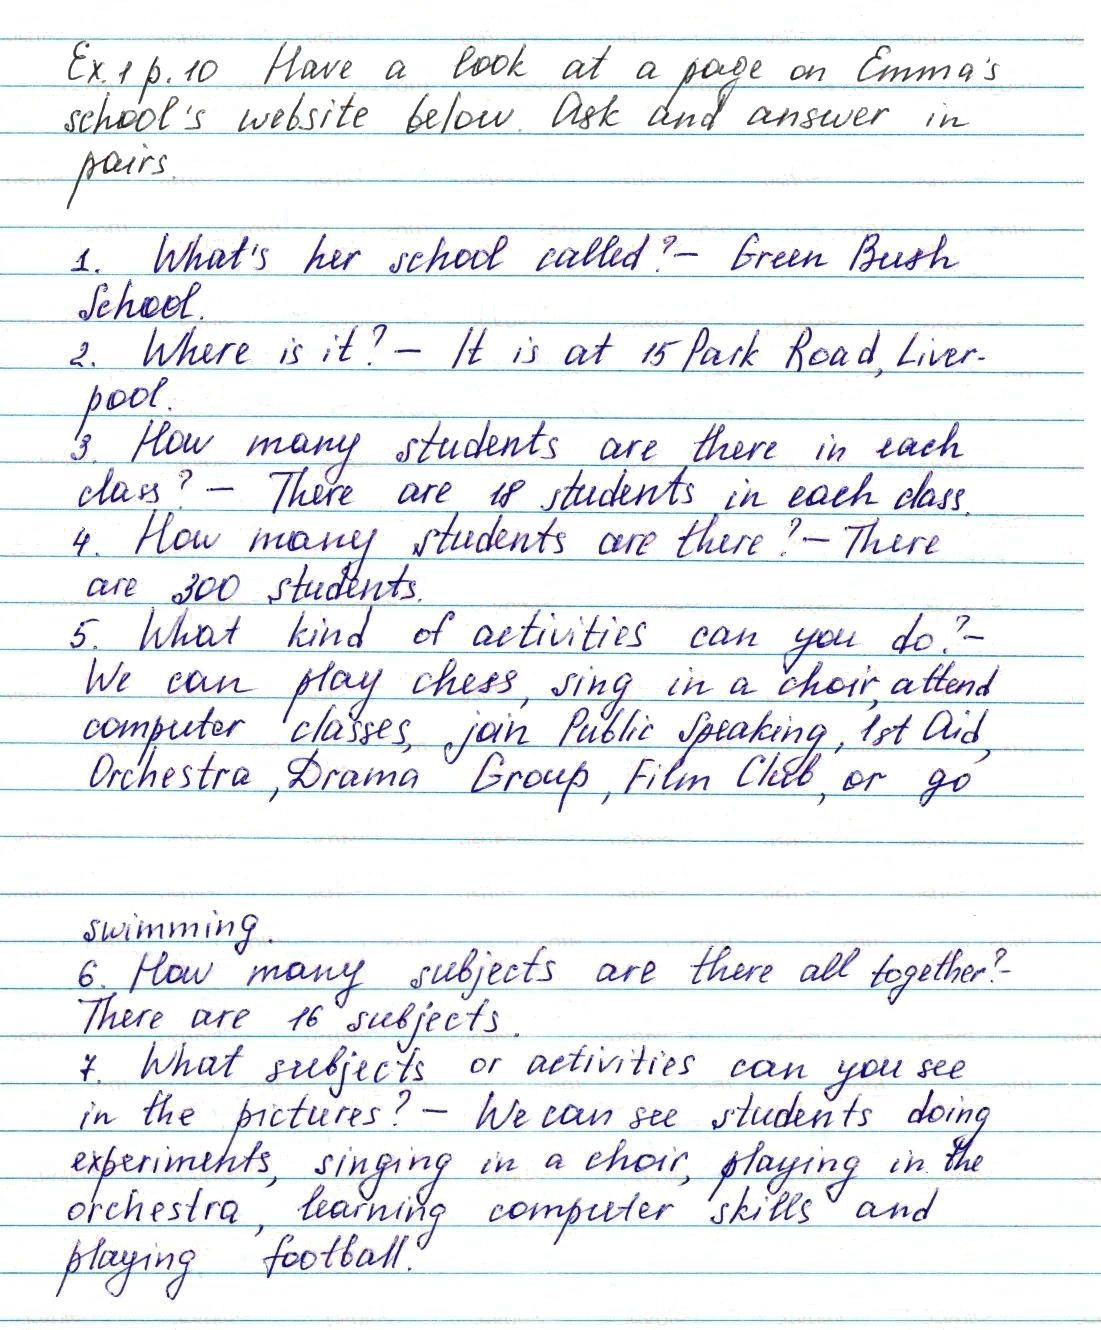 Ex.1 p.10 Have a look at a page on Emma's
school's website below. Ask and answer in
pairs.
1. What's her school called? – Green Bush
School.
2. Where is it? – It is at 15 Park Road, Liver-
pool.
3. How many students are there in each
class? – There are 18 students in each class.
4. How many students are there? – There
are 300 students.
5. What kind of activities can you do? –
We can play chess, sing in a choir, attend
computer classes, join Public Speaking, 1st Aid,
Orchestra, Drama Group, Film Club, or go
swimming.
6. How many subjects are there all together? –
There are 16 subjects.
7. What subjects or activities can you see
in the pictures? – We can see students doing
experiments, singing in a choir, playing in the
orchestra, learning computer skills and
playing football.